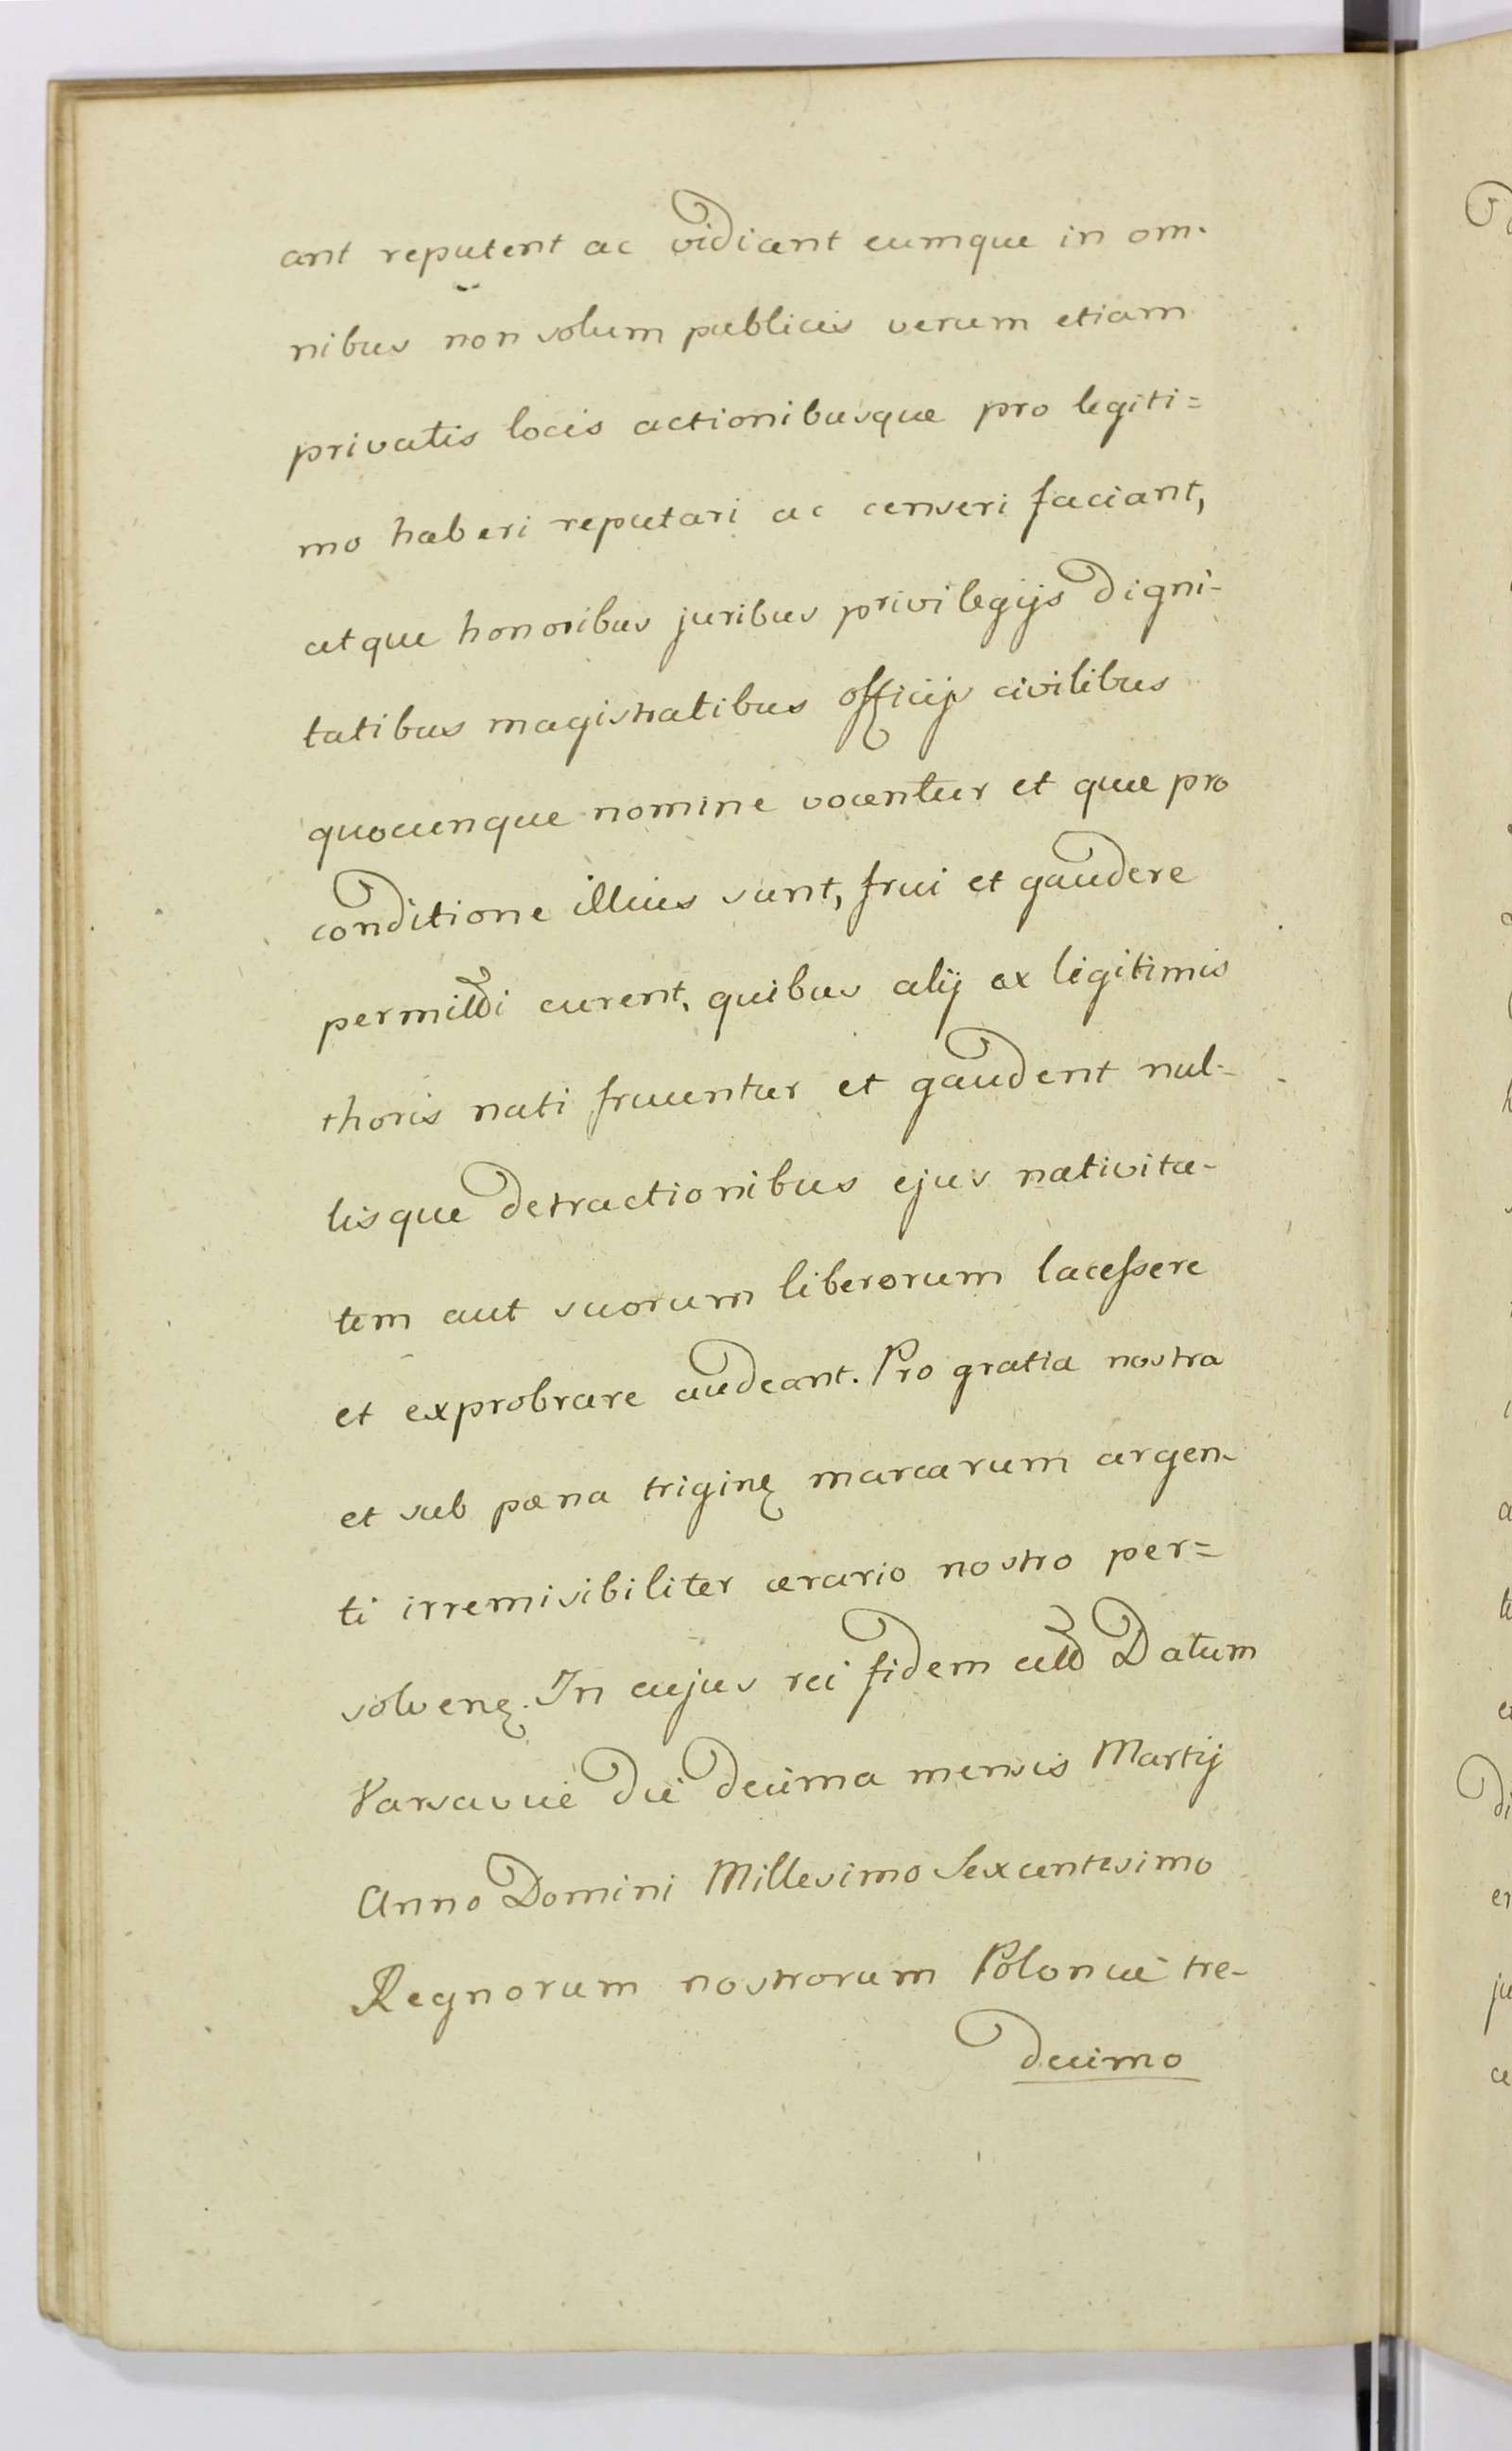 ant reputent ac vidiant eumque in om-
nibus non solum publicis verum etiam
privatis locis actionibusque pro legiti=
mo haberi reputari ac censeri faciant,
atque honoribus juribus privilegijs digni-
tatibus magistratibus officijs civilibus
quocunque nomine vocentur et quæ pro
conditione illius sunt, frui et gaudere
permitti curent, quibus alij ex legitimis
thoris nati fruuntur et gaudent nul-
lisque detractionibus ejus nativita-
tem aut suorum liberorum lacessere
et exprobrare audeant. Pro gratia nostra
et sub pæna triginę marcarum argen-
ti irremisibiliter ærario nostro per=
solvenę. In cujus rei fidem Datum
Varsaviæ die decima mensis Martij
Anno Domini Millesimo Sexcentesimo
Regnorum nostrorum Poloniæ tre-
decimo